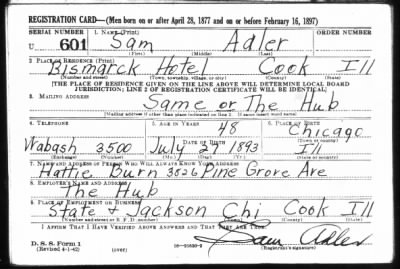 REGISTRATION CARD—(Men born on or after April 28, 1877 and on or before February 16, 1897)
SERIAL NUMBER 1. NAME (Print) ORDER NUMBER
U 601 Sam Adler
(First) (Middle) (Last)
2. PLACE OF RESIDENCE (Print)
Bismarck Hotel Cook Ill
(Number and street) (Town, township, village, or city) (County) (State)
[THE PLACE OF RESIDENCE GIVEN ON THE LINE ABOVE WILL DETERMINE LOCAL BOARD
JURISDICTION; LINE 2 OF REGISTRATION CERTIFICATE WILL BE IDENTICAL]
3. MAILING ADDRESS
Same or The Hub
[Mailing address if other than place indicated on line 2. If same insert word same]
4. TELEPHONE 5. AGE IN YEARS 6. PLACE OF BIRTH
48 Chicago
DATE OF BIRTH (Town or county)
Wabash 3500 July 27 1893 Ill
(Exchange) (Number) (Mo.) (Day) (Yr.) (State or country)
7. NAME AND ADDRESS OF PERSON WHO WILL ALWAYS KNOW YOUR ADDRESS
Hattie Burn 3826 Pine Grove Ave
8. EMPLOYER'S NAME AND ADDRESS
The Hub
9. PLACE OF EMPLOYMENT OR BUSINESS
State + Jackson Chi Cook Ill
(Number and street or R. F. D. number) (Town) (County) (State)
I AFFIRM THAT I HAVE VERIFIED ABOVE ANSWERS AND THAT THEY ARE TRUE.
Sam Adler
D. S. S. Form 1 (Registrant's signature)
(Revised 4-1-42) (over)